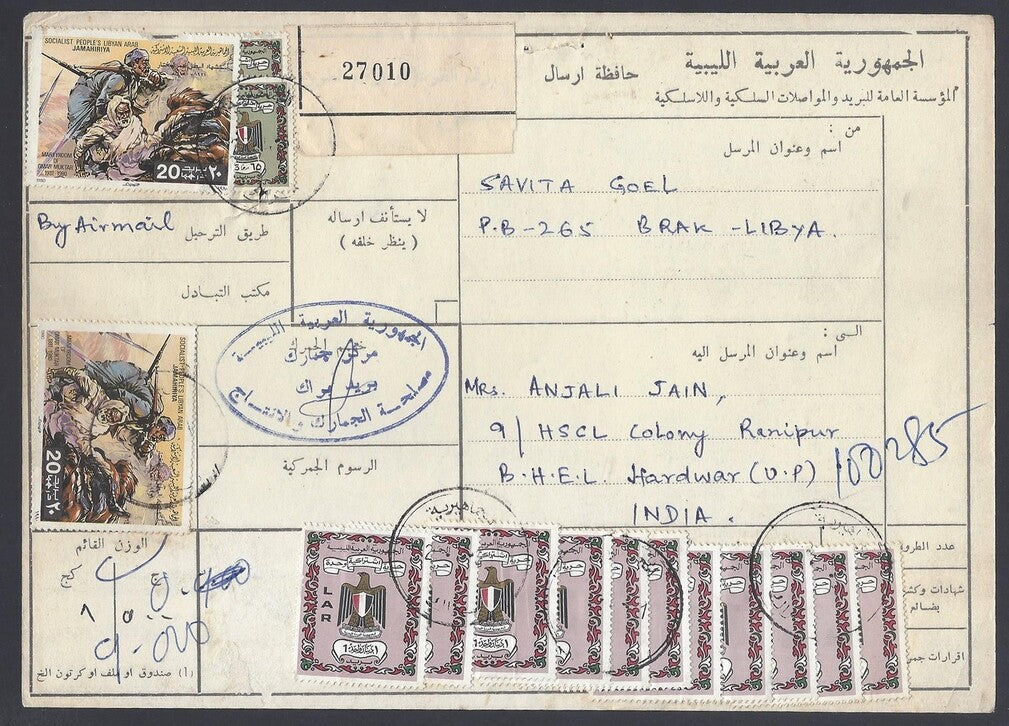 الجمهورية العربية الليبية
المؤسسة العامة للبريد والمواصلات السلكية واللاسلكية
حافظة ارسال
27010
SOCIALIST PEOPLE'S LIBYAN ARAB
JAMAHIRIYA
MARTYRDOM
OF
OMAR MUKTAR
20 ٢٠
من :
اسم وعنوان المرسل
SAVITA GOEL
P.B-265 BRAK -LIBYA.
By Airmail
طريق الترحيل
لا يستأنف ارساله
( ينظر خلفه )
مكتب التبادل
الجمهورية العربية الليبية
مركز جمارك
بريد براك
مصلحة الجمارك والانتاج
الى :
اسم وعنوان المرسل اليه
Mrs. ANJALI JAIN,
9/ HSCL Colony Ranipur
B.H.E.L. Hardwar (U.P)
INDIA.
SOCIALIST PEOPLE'S LIBYAN ARAB
JAMAHIRIYA
20 ٢٠
الرسوم الجمركية
الوزن القائم
كج
عدد الطرو
شهادات وكش
بضائع
اقرارات جمر
(١) صندوق او ملف او كرتون الخ
الجمهورية العربية الليبية
حرية اشتراكية وحدة
LAR
بريد